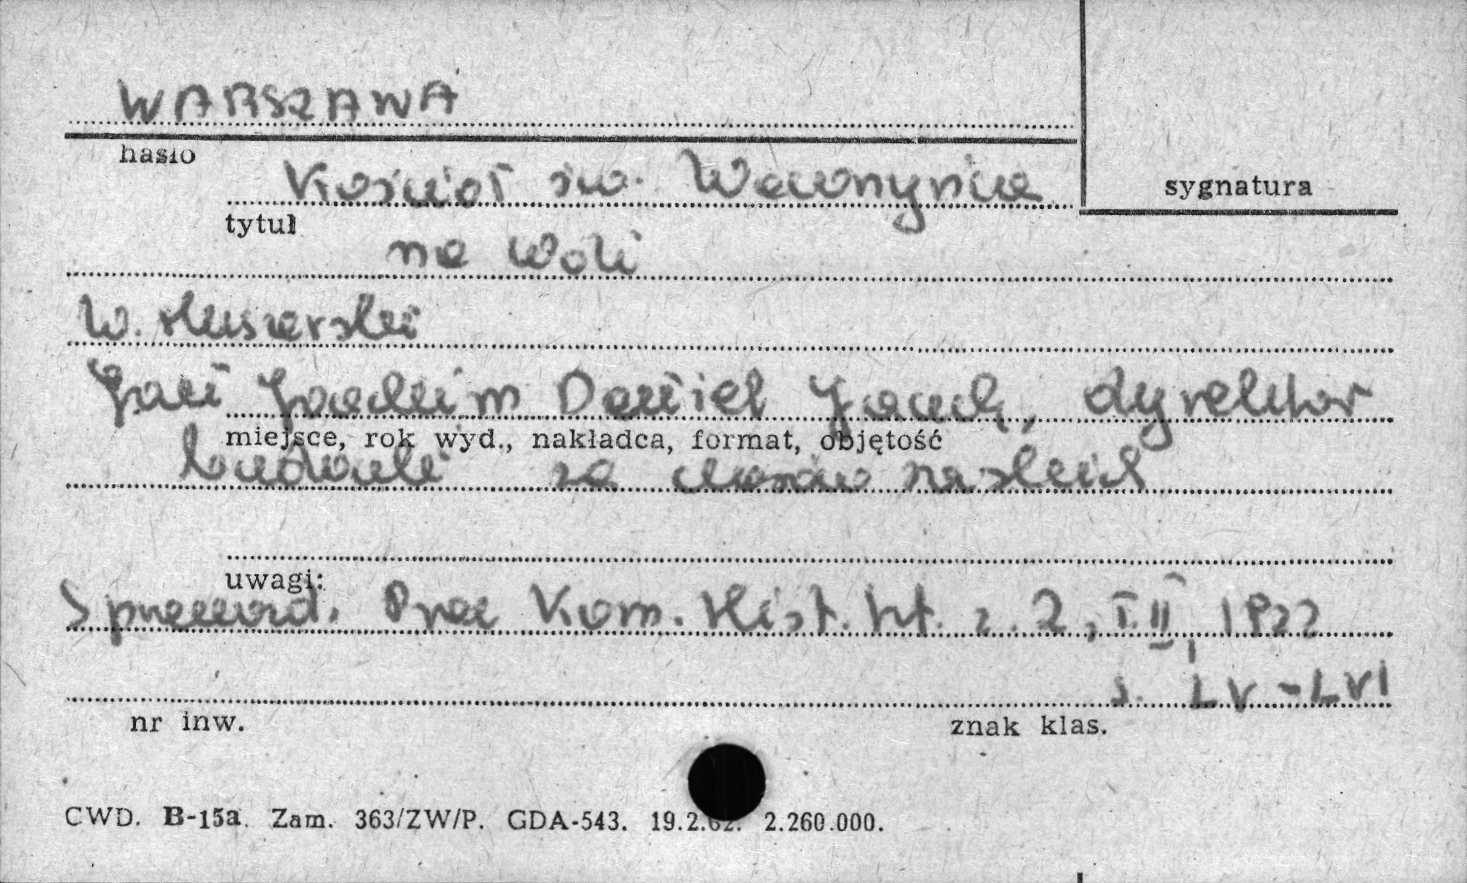 WARSZAWA
hasło
sygnatura
Kościół św. Wawrzyńca
tytuł
na Woli
W. Husarski
Jan Joachim Daniel Jauch, dyrektor
miejsce, rok wyd., nakładca, format, objętość
budowli za czasów saskich
uwagi:
Sprawozd. Prac Kom. Hist. Szt. z. 2, T. II, 1922
s. LV-LVI
nr inw.
znak klas.
CWD. B-15a. Zam. 363/ZW/P. GDA-543. 19.2.62. 2.260.000.